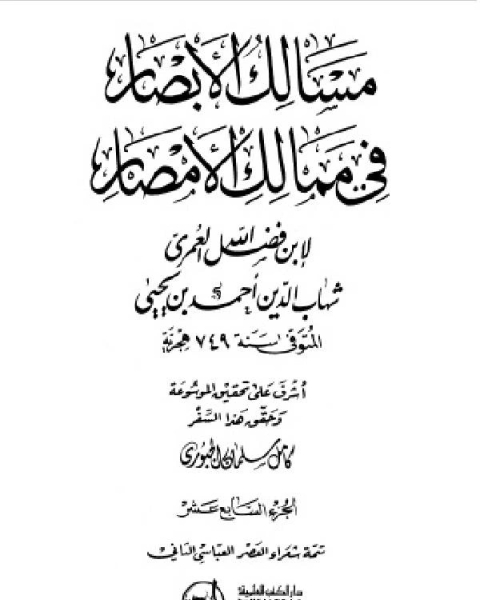 مسالك الأبصار
في ممالك الأمصار
لابن فضل الله العمري
شهاب الدين أحمد بن يحيى
المتوفى سنة ٧٤٩ هجرية
أشرف على تحقيق الموسوعة
وحقق هذا السفر
كامل سلمان الجبوري
الجزء السابع عشر
تتمة شعراء العصر العباسي الثاني
دار الكتب العلمية